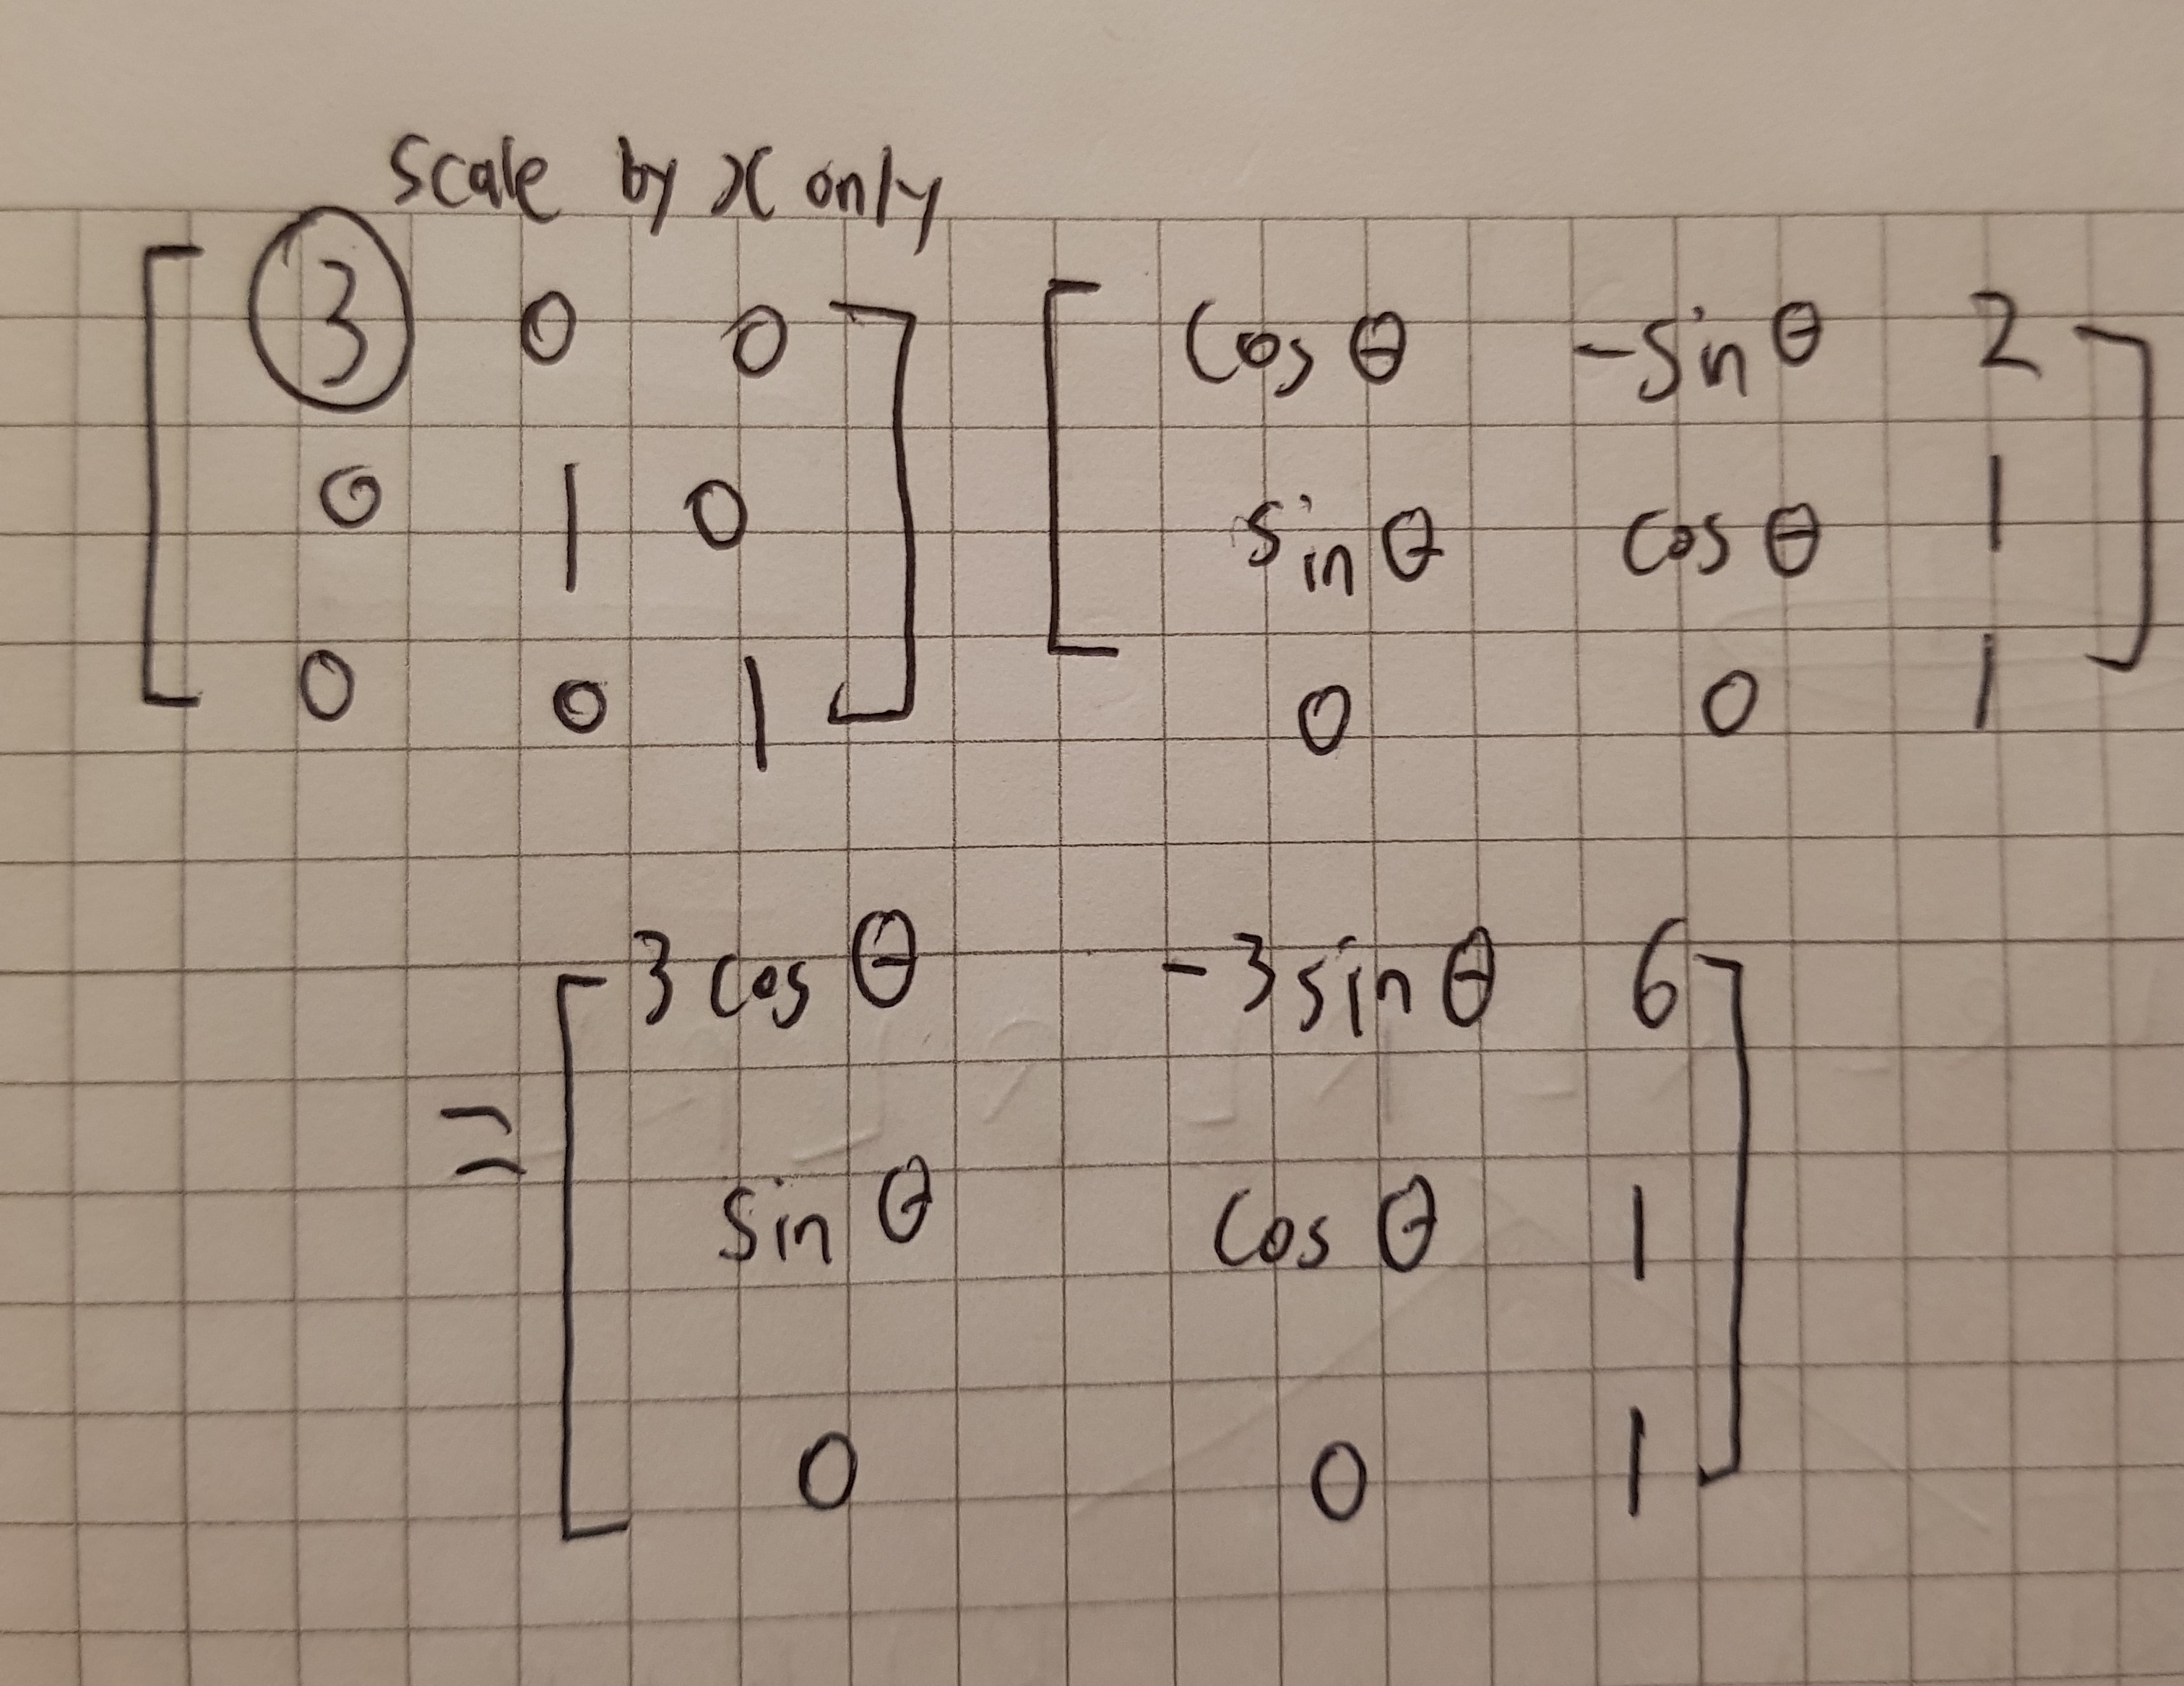 scale by x only
[ 3 0 0 ] [ cos θ -sin θ 2 ]
0 1 0 sin θ cos θ 1
0 0 1 0 0 1
= [ 3 cos θ -3 sin θ 6 ]
sin θ cos θ 1
0 0 1